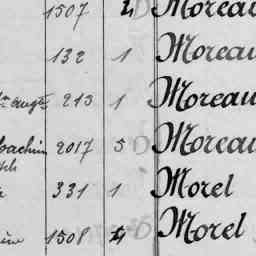 1507 4 Moreau
132 1 Moreau
augte 213 1 Moreau
oachim 2017 5 Moreau
ph
331 1 Morel
1508 4 Morel